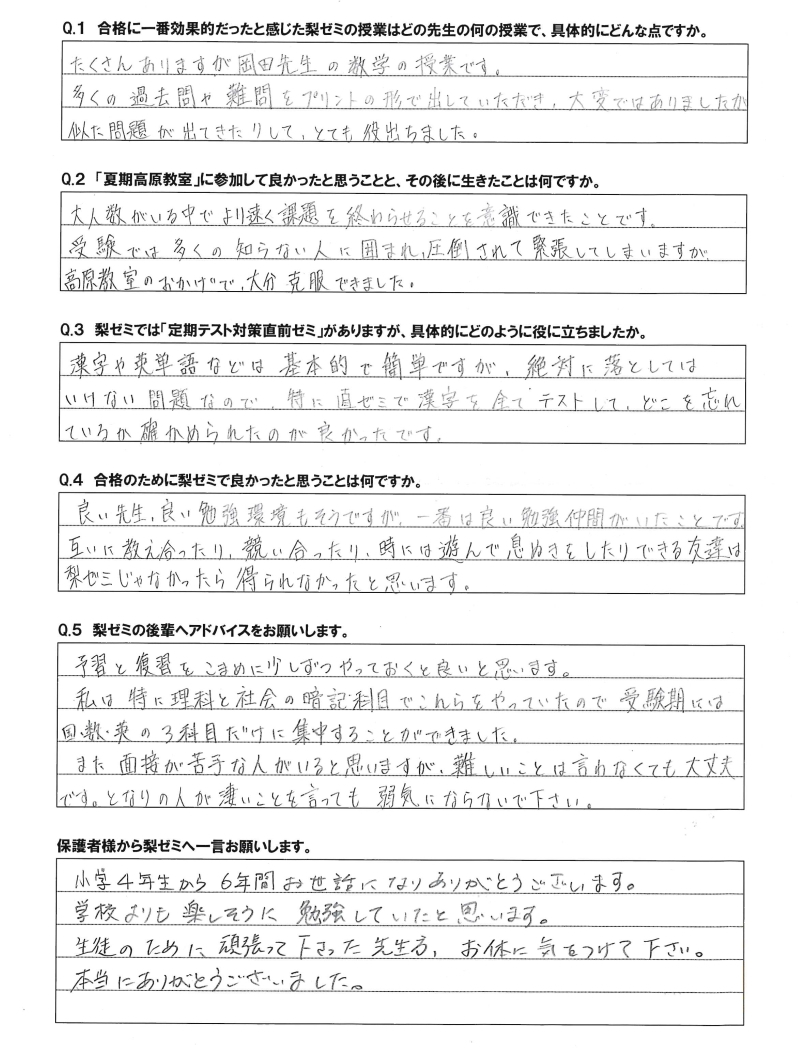 Q.1 合格に一番効果的だったと感じた梨ゼミの授業はどの先生の何の授業で、具体的にどんな点ですか。
たくさんありますが岡田先生の数学の授業です。
多くの過去問や難問をプリントの形で出していただき、大変ではありましたが
似た問題が出てきたりして、とても役出ちました。
Q.2 「夏期高原教室」に参加して良かったと思うことと、その後に生きたことは何ですか。
大人数がいる中でより速く課題を終わらせることを意識できたことです。
受験では多くの知らない人に囲まれ、圧倒されて緊張してしまいますが
高原教室のおかげで、大分克服できました。
Q.3 梨ゼミでは「定期テスト対策直前ゼミ」がありますが、具体的にどのように役に立ちましたか。
漢字や英単語などは基本的で簡単ですが、絶対に落としては
いけない問題なので、特に直ゼミで漢字を全てテストして、どこを忘れ
ているか確かめられたのが良かったです。
Q.4 合格のために梨ゼミで良かったと思うことは何ですか。
良い先生、良い勉強環境もそうですが、一番は良い勉強仲間がいたことです
互いに教え合ったり、競い合ったり、時には遊んで息ぬきをしたりできる友達は
梨ゼミじゃなかったら得られなかったと思います。
Q.5 梨ゼミの後輩へアドバイスをお願いします。
予習と復習をこまめに少しずつやっておくと良いと思います。
私は特に理科と社会の暗記科目でこれらをやっていたので受験期には
国・数・英の3科目だけに集中することができました。
また面接が苦手な人がいると思いますが、難しいことは言わなくても大丈夫
です。となりの人が凄いことを言っても弱気にならないで下さい。
保護者様から梨ゼミへ一言お願いします。
小学4年生から6年間お世話になりありがとうございます。
学校よりも楽しそうに勉強していたと思います。
生徒のために頑張って下さった先生方、お体に気をつけて下さい。
本当にありがとうございました。